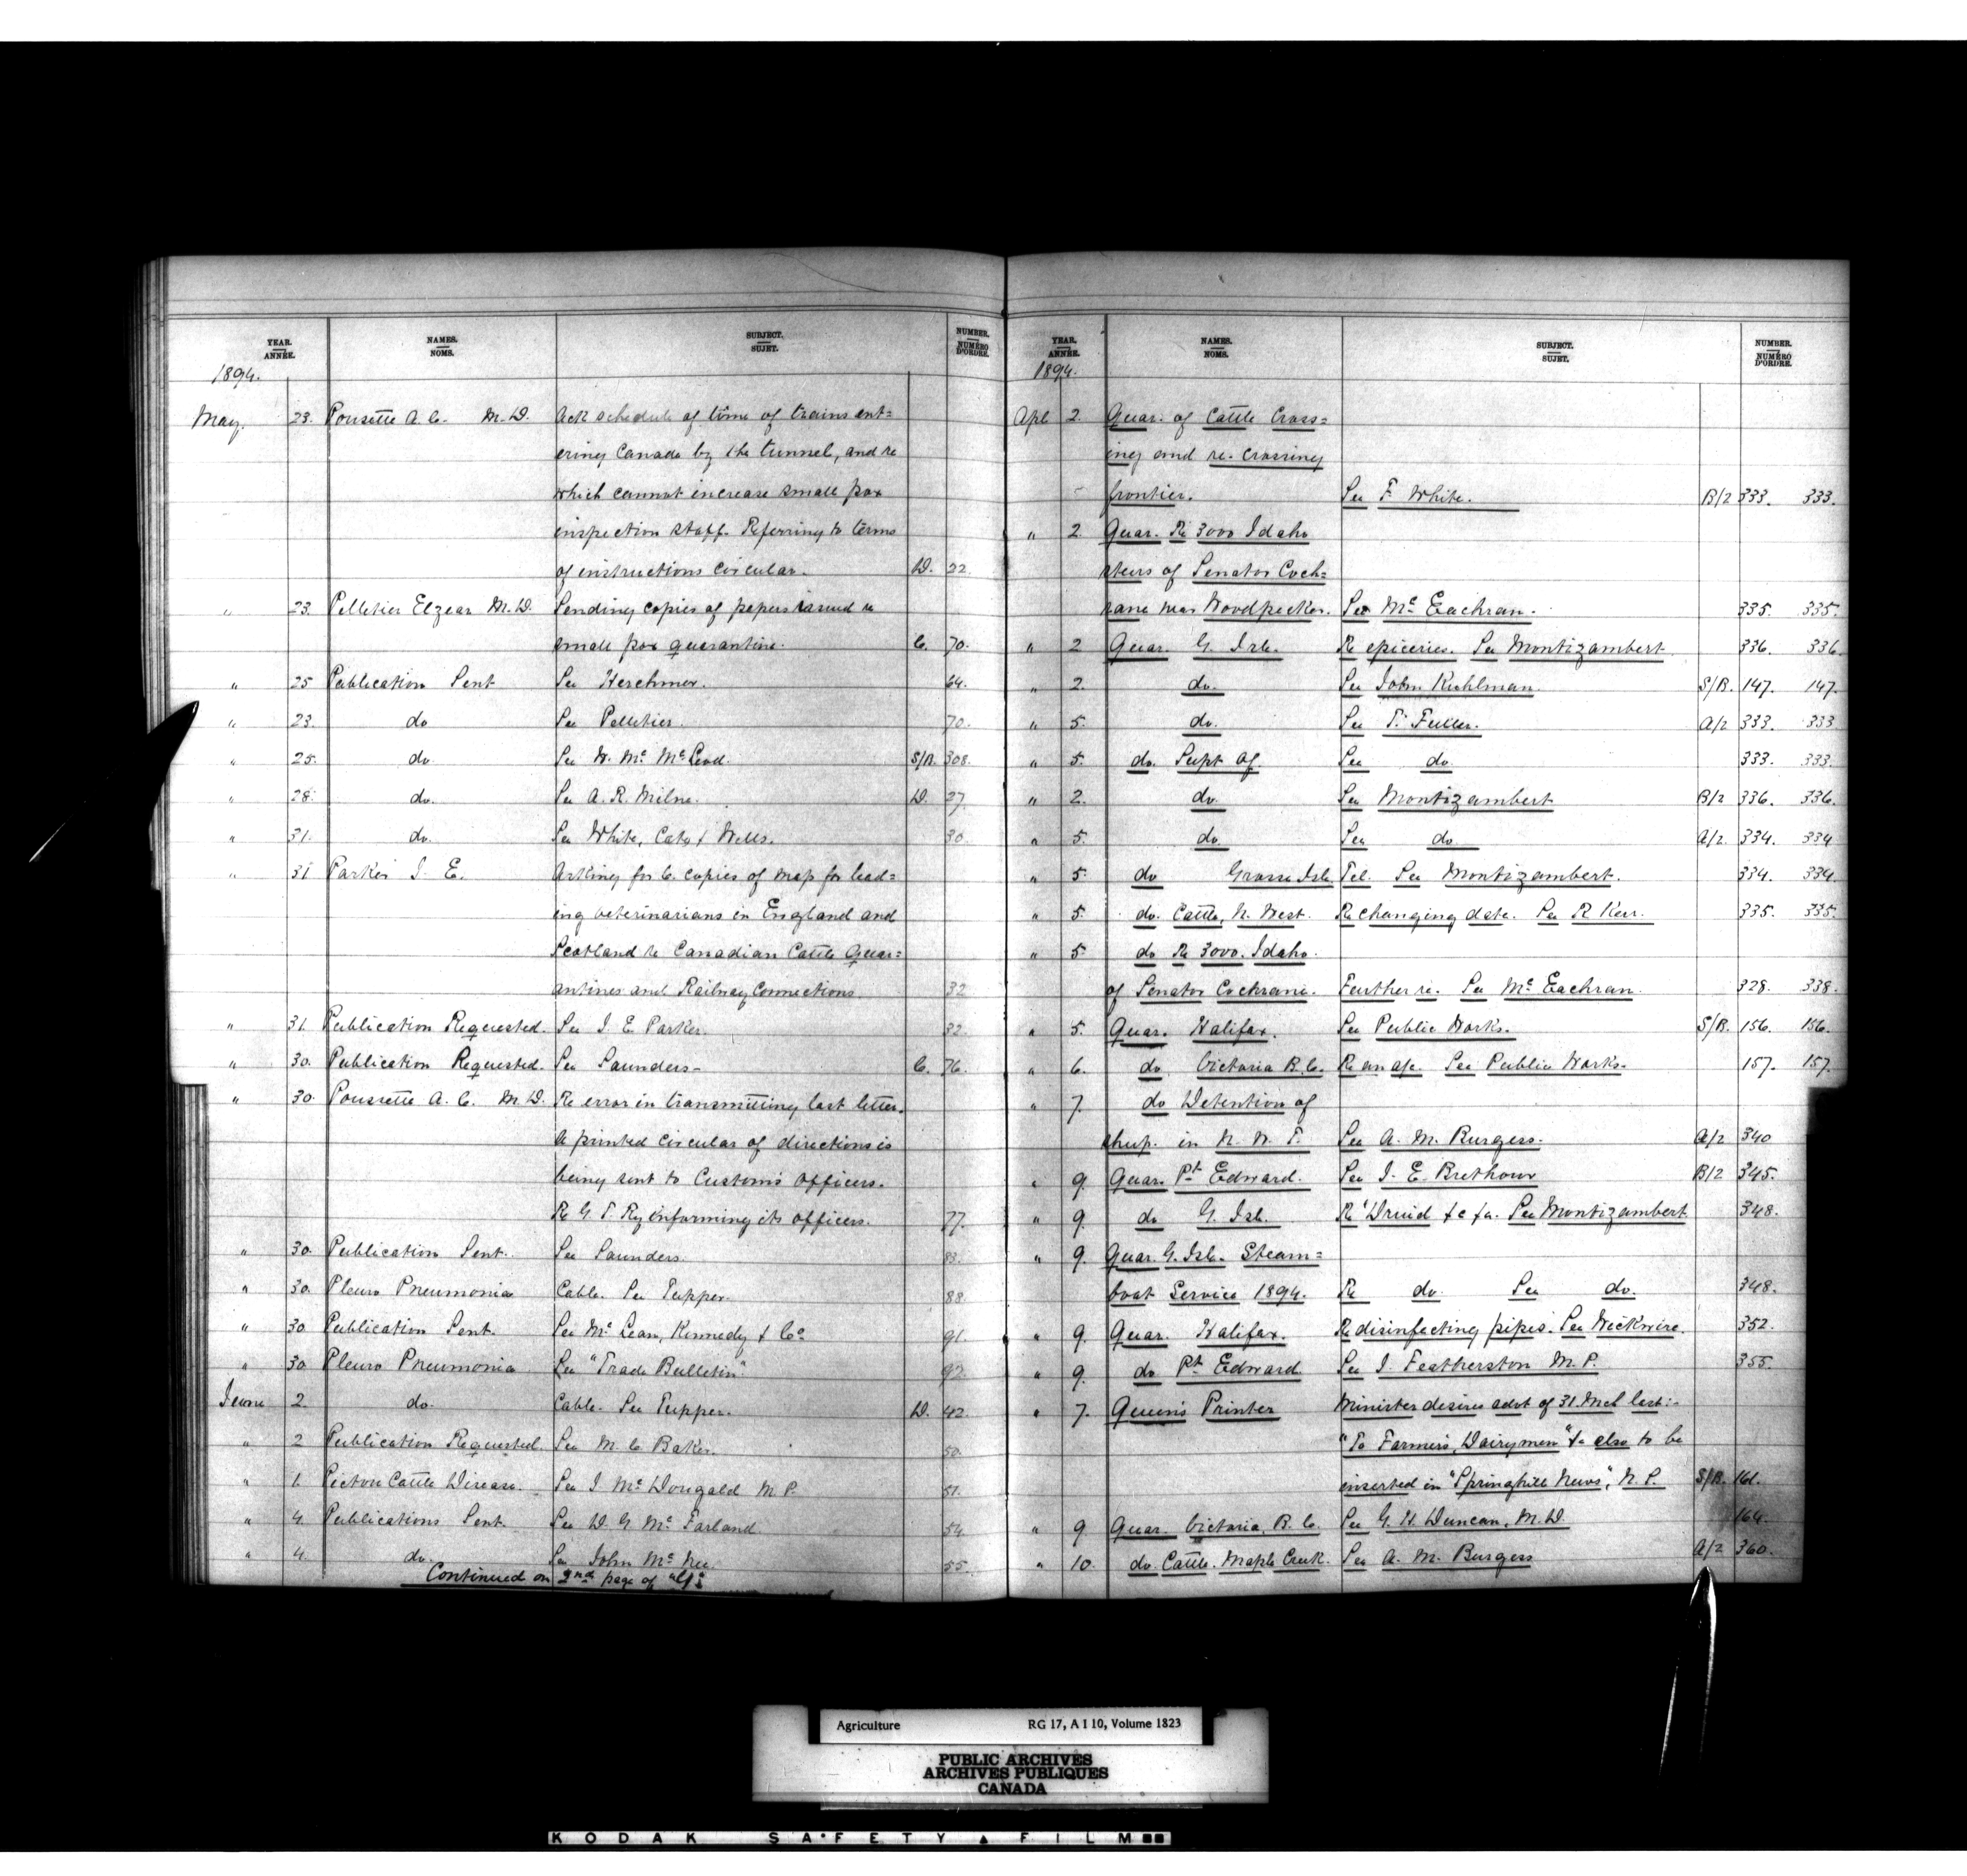 YEAR. ANNÉE. NAMES. NOMS. SUBJECT. SUJET. NUMBER. NUMÉRO D'ORDRE.
1894.
May. 23. Pousette A. C. M.D. Ack schedule of time of trains ent=
ering Canada by the tunnel, and re
which cannot increase small pox
inspection staff. Referring to terms
of instructions circular. D. 22.
" 23. Pelletier Elzear M.D. Sending copies of papers issued re
small pox quarantine. C. 70.
" 25 Publication Sent See Herchmer. 64.
" 23. do See Pelletier. 70.
" 25. do. See W. Mc McLeod. S/B. 308.
" 28. do. See A. R. Milne. D. 27
" 31. do. See White, Cate & Wells. 30.
" 31 Parker J. E. Asking for 6. copies of map for lead=
ing veterinarians in England and
Scotland re Canadian Cattle Quar=
antines and Railway Connections. 32
" 31. Publication Requested. See J. E Parker. 32.
" 30. Publication Requested. See Saunders- C. 76.
" 30. Pousette A. C. M.D. Re error in transmitting last letter.
A printed circular of directions is
being sent to Customs Officers.
Re G. T. Ry informing its officers. 77.
" 30. Publication Sent. See Saunders. 83.
" 30. Pleuro Pneumonia Cable. See Tupper. 88.
" 30 Publication Sent. See McLean, Kennedy & Co 91.
" 30. Pleuro Pneumonia See "Trade Bulletin". 92.
June 2. do. Cable. See Tupper. D. 42.
" 2 Publication Requested. See M. C. Baker. 50.
" 1. Pictou Cattle Disease. See J. McDougald M.P. 51.
" 4. Publications Sent. See D. G. McFarland 54.
" 4. do. See John McNee. 55.
Continued on 2nd page of "Y"
YEAR. ANNÉE. NAMES. NOMS. SUBJECT. SUJET. NUMBER. NUMÉRO D'ORDRE.
1894.
Apl 2. Quar. of Cattle Cross=
ing and re-crossing
frontier. See F. White. B/2 333. 333.
" 2. Quar. Re 3000 Idaho
steers of Senator Coch=
rane near Woodpecker. See McEachran. 335. 335.
" 2 Quar. G. Isle. Re epiceries. See Montizambert. 336. 336.
" 2. do. See John Kuhlman. S/B. 147. 147.
" 5. do. See T. Fuller. A/2 333. 333
" 5. do. Supt of See do. 333. 333.
" 2. do. See Montizambert B/2 336. 336.
" 5. do. See do. A/2. 334. 334
" 5. do Grosse Isle. Tel. See Montizambert. 334. 334.
" 5. do. Cattle, N. West. Re changing date. See R Kerr. 335. 335.
" 5 do Re 3000. Idaho.
of Senator Cochrane. Further re. See McEachran. 328. 338.
" 5. Quar. Halifax. See Public Works. S/B. 156. 156.
" 6. do. Victoria B.C. See Public Works. 157. 157.
" 7. do Detention of
sheep. in N. W. T. See A. M. Burgess. A/2 340
" 9. Quar. Pt Edward. See J. E. Brethour B/2 345.
" 9. do G. Isle. Re "Druid &c &c. See Montizambert 348.
" 9. Quar. G. Isle. Steam=
boat Service 1894. Re do. See do. 348.
" 9. Quar. Halifax. Re disinfecting pipes. See Wickwire. 352.
" 9. do. Pt Edward. See J. Featherston M.P. 355.
" 7. Queen's Printer Minister desires advt of 31. Mch last:-
"To Farmers, Dairymen" &c also to be
inserted in "Springhill News", N.S. S/B. 161.
" 9 Quar. Victoria, B.C. See G. H. Duncan, M.D 164.
" 10. do. Cattle. Maple Creek. See A. M. Burgess A/2 360.
Agriculture RG 17, A I 10, Volume 1823
PUBLIC ARCHIVES
ARCHIVES PUBLIQUES
CANADA
KODAK SAFETY FILM